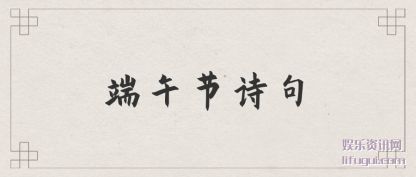 端午节诗句
娱乐资讯网
lifugui.com